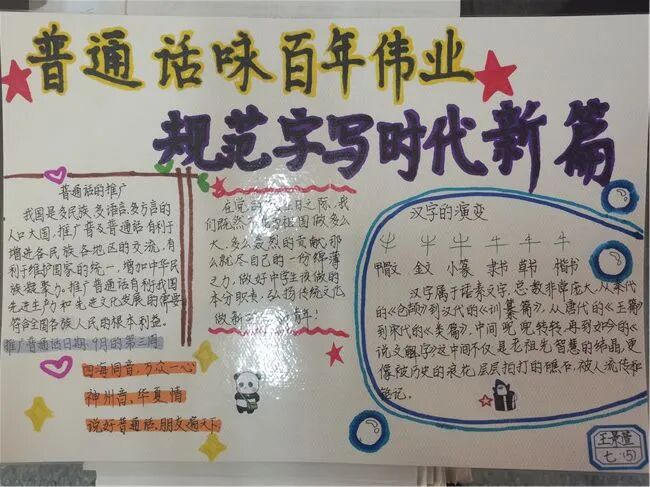 普通话咏百年伟业
规范字写时代新篇
普通话的推广
我国是多民族、多语言、多方言的
人口大国，推广普及普通话有利于
增进各民族各地区的交流，有
利于维护国家的统一，增加中华民
族凝聚力。推广普通话有利我国
先进生产力和先进文化发展的需要
符合全国各族人民的根本利益。
推广普通话日期：9月的第三周
四海同音，万众一心
神州音，华夏情
说好普通话，朋友遍天下
在党的日之际，我
们既然祖国做多么
大、多么轰烈的贡献，那
么就尽自己的一份绵薄
之力，做好中学生该做的
本分职责，弘扬传统文化
做新青年！
汉字的演变
甲骨文 金文 小篆 隶书 草书 楷书
汉字属于语素汉字，总数非常庞大，从秦代
的《仓颉》到汉代的《训纂篇》，从唐代的《玉篇》
到宋代的《类篇》，中间兜兜转转，再到如今的《
说文解字》这中间不仅是老祖先智慧的结晶，更
像被历史的浪花层层拍打的礁石，被人流传和
笔记。
王景萱
七.(5)